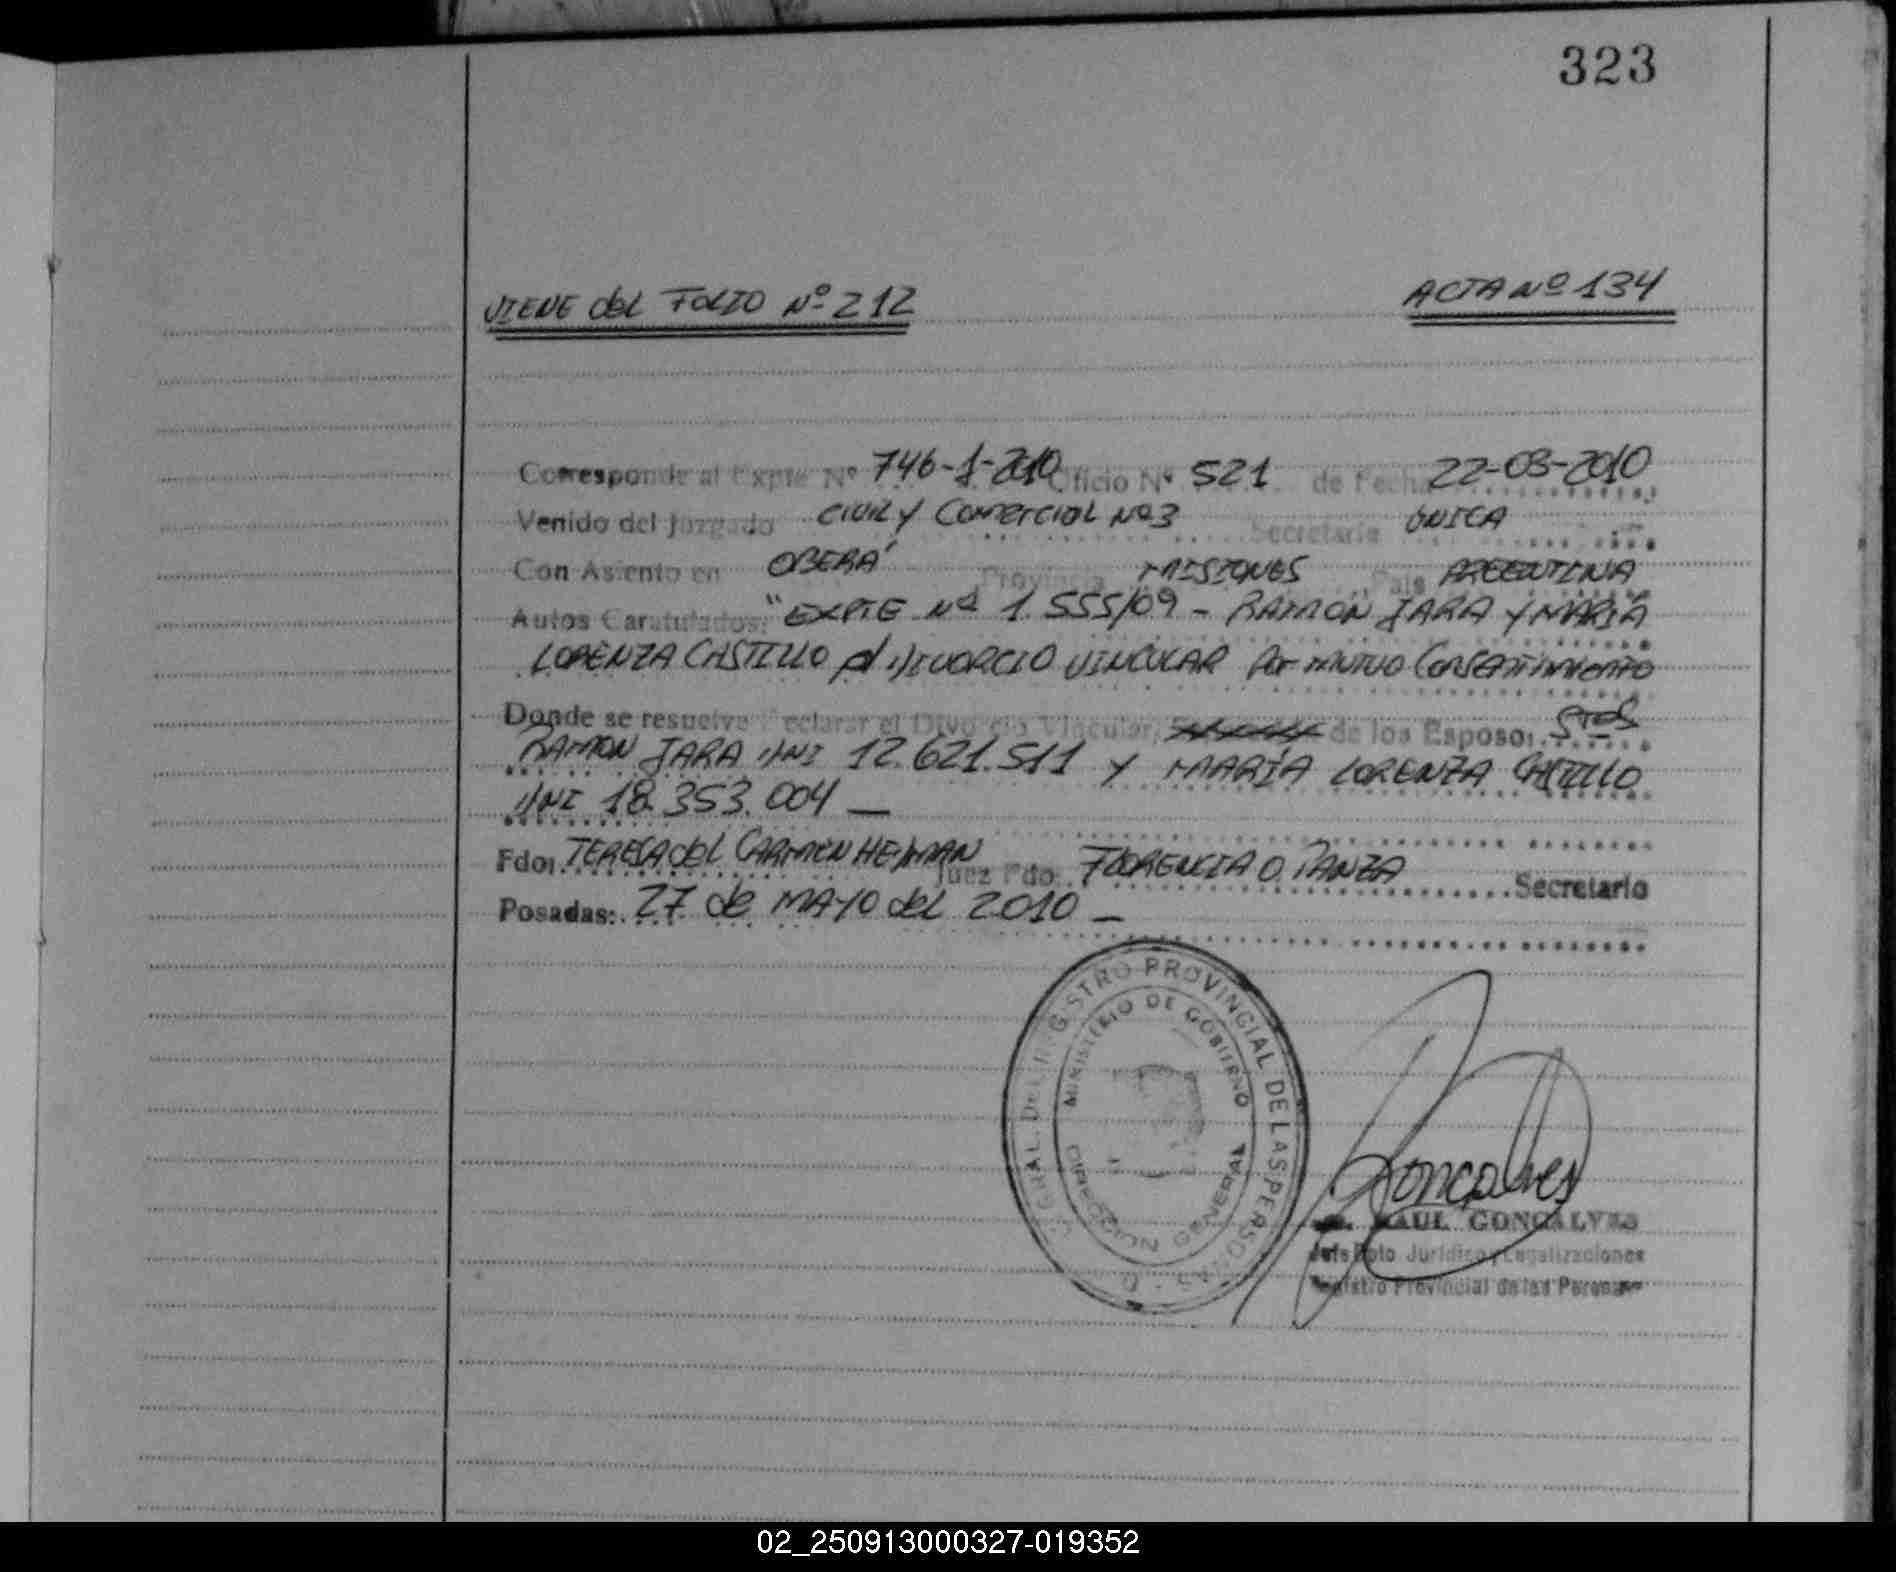 323
VIENE del FOLIO Nº 212 ACTA Nº 134
Corresponde al Expte Nº 746-J-2010 Oficio Nº 521 de Fecha 22-03-2010
Venido del Juzgado CIVIL Y COMERCIAL Nº3 Secretaria ÚNICA
Con Asiento en OBERÁ Provincia MISIONES País ARGENTINA
Autos Caratulados: "EXPTE Nº 1.555/09 - RAMON JARA Y MARÍA
LORENZA CASTILLO p/ DIVORCIO VINCULAR Por MUTUO CONSENTIMIENTO
Donde se resuelve Declarar el Divorcio Vincular, de los Esposos STES
RAMON JARA DNI 12.621.511 Y MARÍA LORENZA CASTILLO
DNI 18.353.004 —
Fdo: TERESA del CARMEN HEDMAN Juez Fdo: FLORENCIA O. PANZA Secretario
Posadas: 27 de MAYO del 2010 —
GRAL. DEL REGISTRO PROVINCIAL DE LAS PERSONAS
MINISTERIO DE GOBIERNO
DIRECCION GENERAL
Goncalves
RAUL GONCALVES
Jefe Dpto Jurídico y Legalizaciones
Registro Provincial de las Personas
02_250913000327-019352